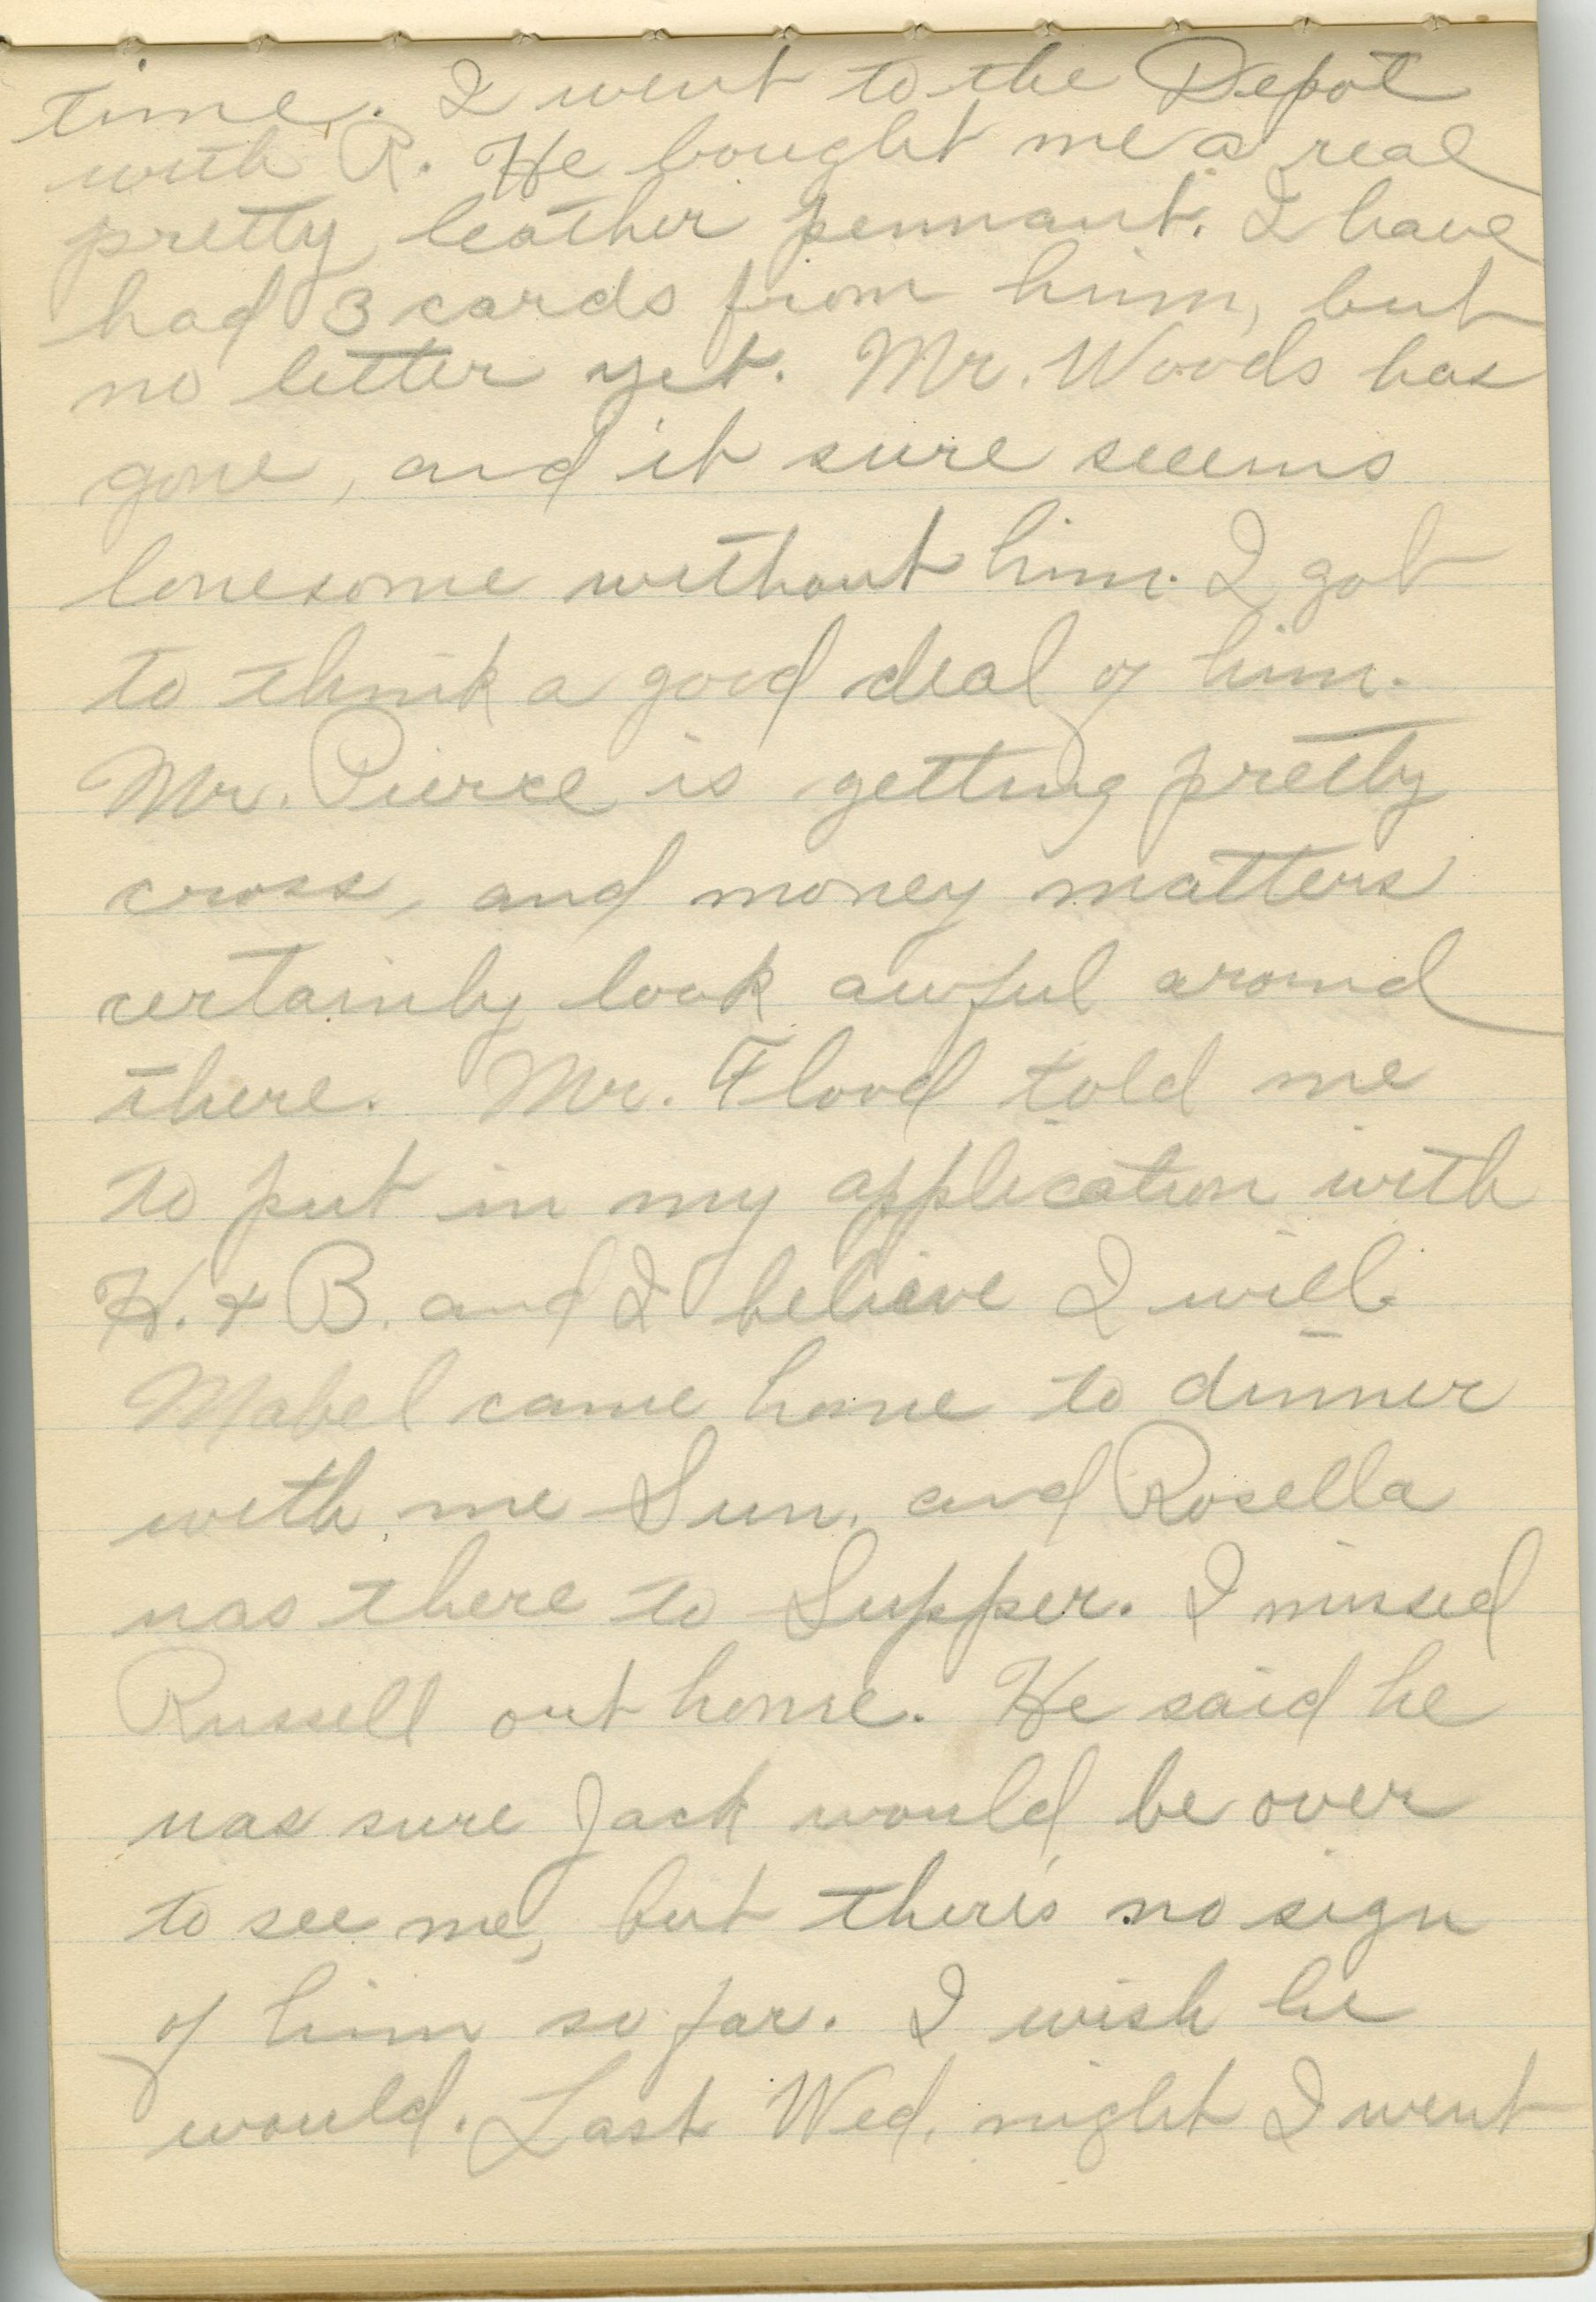 time. I went to the Depot
with R. He bought me a real
pretty leather pennant. I have
had 3 cards from him, but
no letter yet. Mr. Woods has
gone, and it sure seems
lonesome without him. I got
to think a good deal of him.
Mr. Pierce is getting pretty
cross, and money matters
certainly look awful around
there. Mr. Flood told me
to put in my application with
H. & B. and I believe I will.
Mabel came home to dinner
with me Sun. and Rosella
was there to Supper. I missed
Russell out home. He said he
was sure Jack would be over
to see me, but there's no sign
of him so far. I wish he
would. Last Wed. night I went